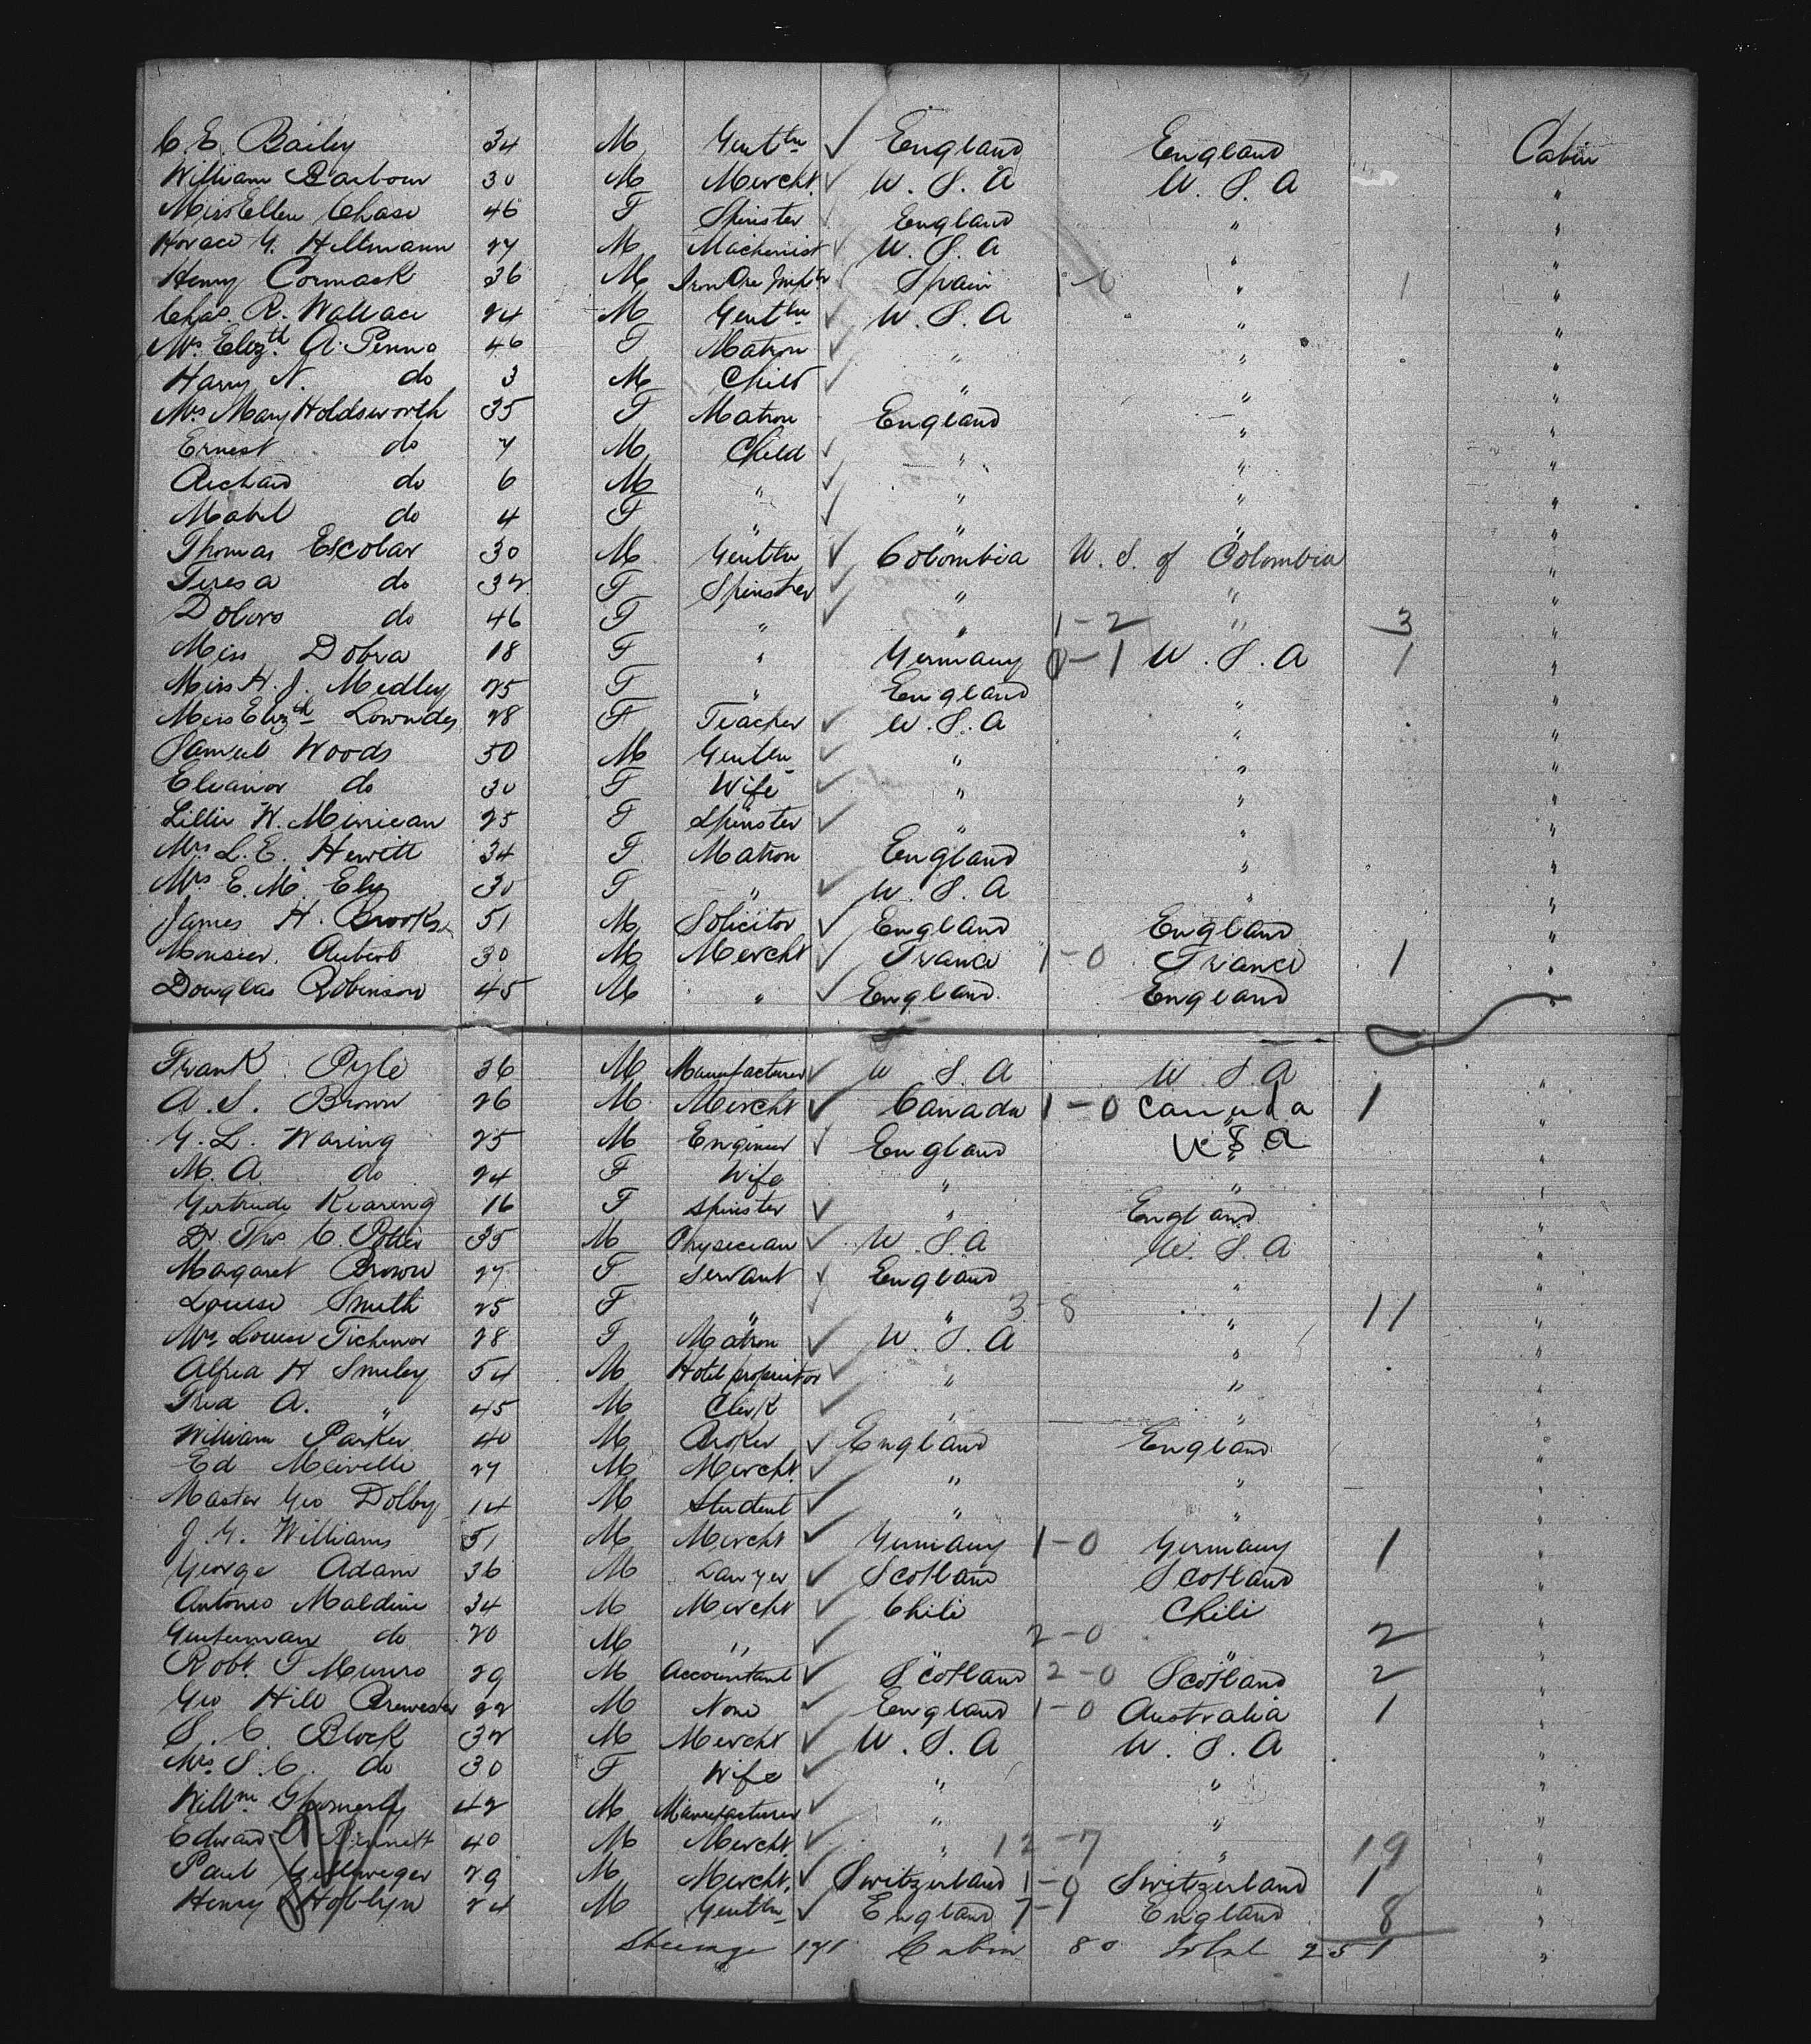 C. E. Bailey 34 M Gentln ✓ England England Cabin
William Barbour 30 M Mercht. ✓ U. S. A U. S. A "
Miss Ellen Chase 46 F Spinster ✓ England " "
Horace G. Hillmann 27 M Machinist ✓ U. S. A " "
Henry Cormack 36 M Iron Ore Impt ✓ Spain 1-0 " 1 "
Chas. R. Wallace 24 M Gentln ✓ U. S. A " "
Mrs Elizth. A. Penno 46 F Matron ✓ " " "
Harry N. do 3 M Child ✓ " " "
Mrs Mary Holdsworth 35 F Matron England " "
Ernest do 7 M Child ✓ " " "
Richard do 6 M " ✓ " " "
Mabel do 4 F " ✓ " " "
Thomas Escobar 30 M Gentln ✓ Colombia U. S. of Colombia "
Teresa do 32 F Spinster ✓ " " "
Dolors do 46 F " ✓ " 1-2 " 3 "
Miss Dobra 18 F " Germany 0-1 U. S. A 1 "
Miss H. J. Medley 25 F " England " "
Miss Elizth Lowndes 28 F Teacher ✓ U. S. A " "
Samuel Woods 50 M Gentln ✓ " " "
Eleanor do 30 F Wife ✓ " " "
Lillie W. 25 F Spinster ✓ " " "
Mrs L. E. Hewitt 34 F Matron England " "
Mrs E. M. Ely 30 F " ✓ U. S. A " "
James H. Brooks 51 M Solicitor ✓ England England "
Monsier. Aubert 30 M Mercht ✓ France 1-0 France 1 "
Douglas Robinson 45 M " ✓ England England "
Frank Pyle 36 M Manufacturer ✓ U S. A U. S. A "
A. S. Brown 26 M Mercht ✓ Canada 1-0 Canada 1 "
G. L. Waring 25 M Engineer ✓ England U S A "
M. A. do 24 F Wife " " "
Gertrude Kearing 16 F Spinster ✓ " England "
Dr. Thos. C. Potter 35 M Physician ✓ U. S. A U. S. A "
Margaret Brown 27 F Servant ✓ England " "
Louise Smith 25 F " ✓ " 3-8 " 11 "
Mrs Louise Tichenor 28 F Matron ✓ U. S. A " "
Alfred H Smiley 54 M Hotel proprietor ✓ " " "
Fred A. " 45 M Clerk ✓ " " "
William Parker 40 M Broker ✓ England England "
Ed 27 M Mercht. ✓ " " "
Master Geo Dolby 14 M Student ✓ " " "
J. G. Williams 51 M Mercht ✓ Germany 1-0 Germany 1 "
George Adam 36 M Lawyer ✓ Scotland Scotland "
Antonio Maldini 34 M Mercht ✓ Chili Chili "
do 20 M " ✓ " 2-0 " 2 "
Robt. T Munro 29 M Accountant ✓ Scotland 2-0 Scotland 2 "
Geo Hill Brewester 22 M None ✓ England 1-0 Australia 1 "
S. C. Block 32 M Mercht ✓ U. S. A U. S. A "
Mrs. S. C. do 30 F Wife ✓ " " "
Willm 42 M Manufacturer ✓ " " "
Edward Bennett 40 M Mercht. ✓ " 12-7 " 19 "
Paul Zellweger 29 M Mercht. ✓ Switzerland 1-0 Switzerland 1 "
Henry Hoblyn 24 M Gentln ✓ England 7-1 England 8 "
Steerage 171 Cabin 80 Total 251 "